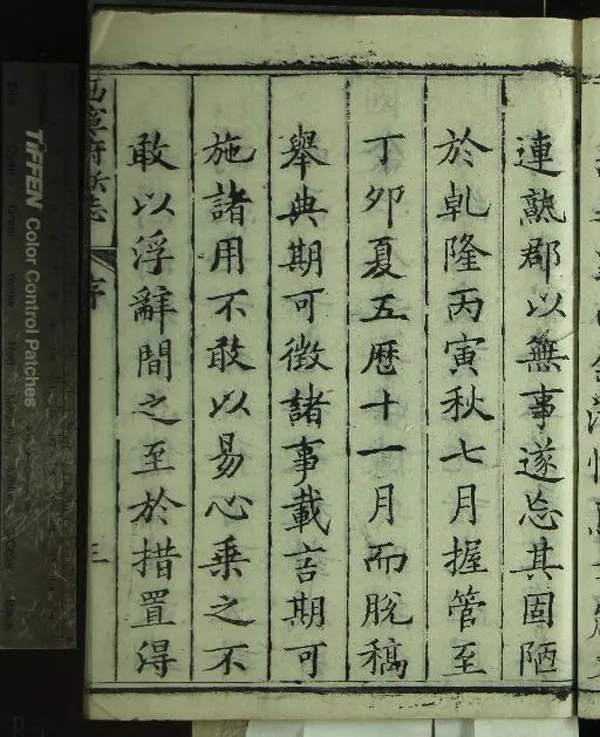 連熟郡以無事遂忘其固陋
於乹隆丙寅秋七月握管至
丁卯夏五曆十一月而脫稿
舉典期可徵諸事載言期可
施諸用不敢以易心乗之不
敢以浮辭間之至於措置得
西寧府新志
序
三
TIFFEN Color Control Patches